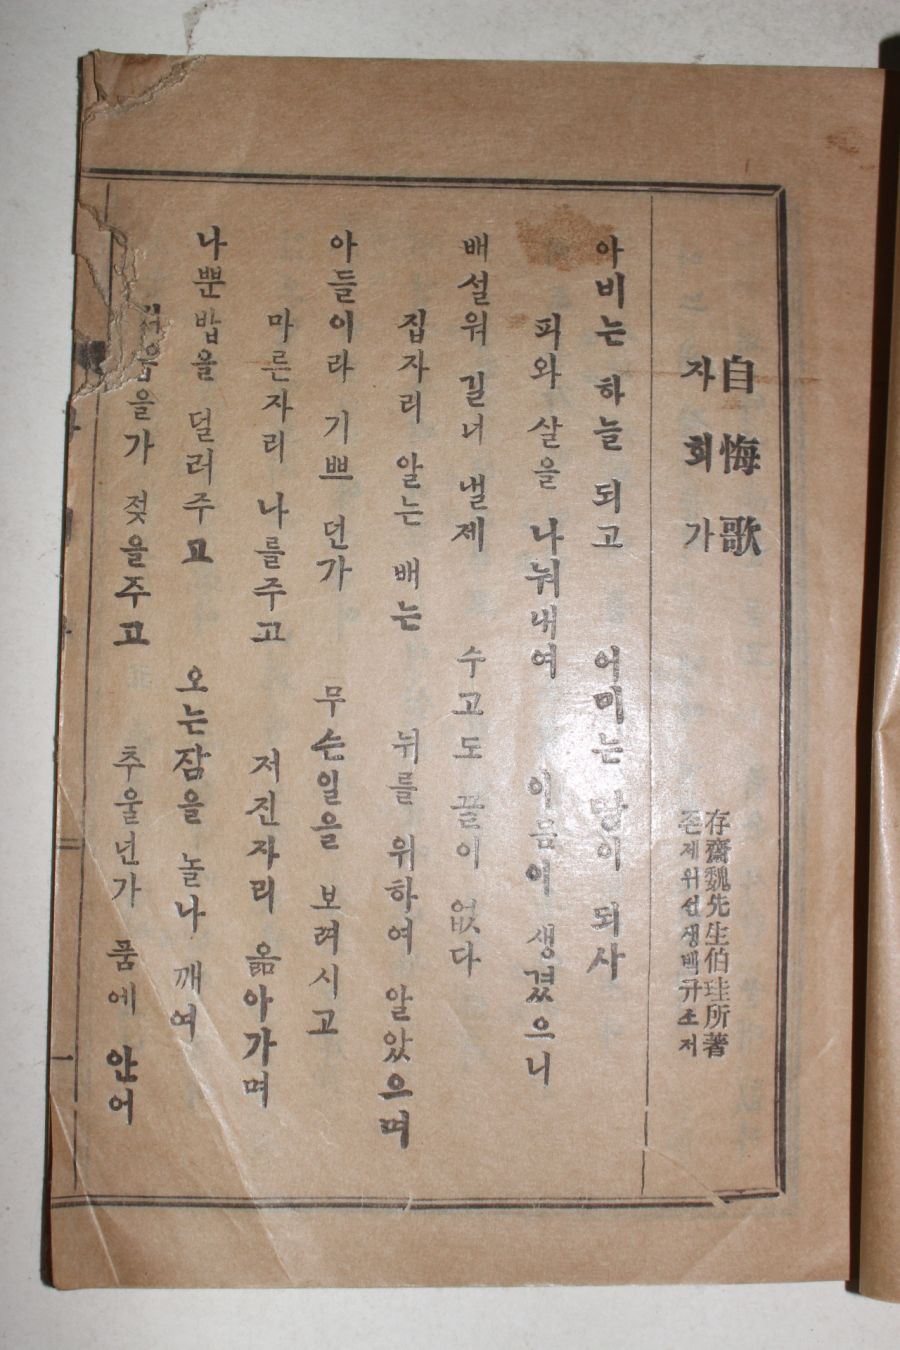 自悔歌
자회가
存齋魏先生伯珪所著
존제위선생백규소저
아비는 하늘 되고 어미는 땅이 되사
피와 살을 나눠내여 이 몸이 생겼으니
배설워 길너 낼제 수고도 끌이 없다
집자리 알는 배는 뉘를 위하여 알았으며
아들이라 기쁘 던가 무슨일을 보려시고
마른자리 나를주고 저진자리 옮아가며
나뿐밥을 덜러주고 오는잠을 놀나 깨여
가 젖을주고 추울넌가 품에 안어
一